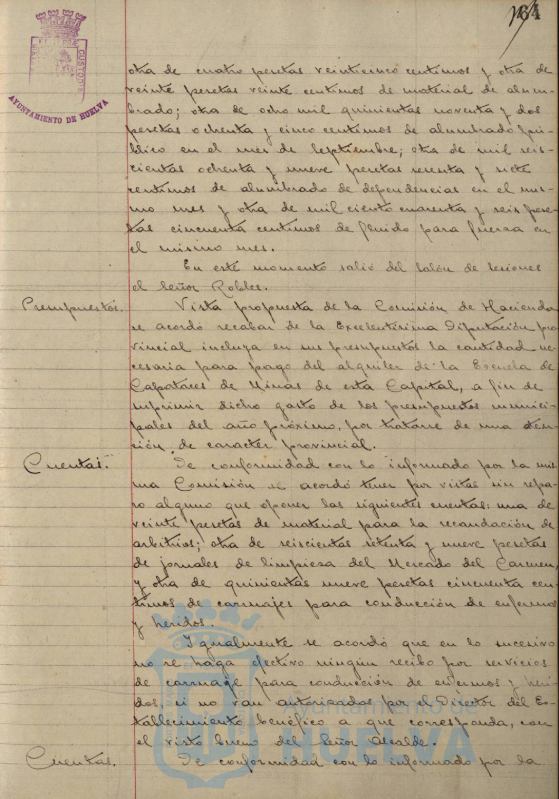 164
AYUNTAMIENTO DE HUELVA
otra de cuatro pesetas veinticinco centimos y otra de
veinte pesetas veinte centimos de material de alum-
brado; otra de ocho mil quinientas noventa y dos
pesetas ochenta y cinco centimos de alumbrado pú-
blico en el mes de Septiembre; otra de mil seis-
cientas ochenta y nueve pesetas setenta y siete
centimos de alumbrado de dependencias en el mis-
mo mes y otra de mil ciento cuarenta y seis pese-
tas cincuenta centimos de fluido para fuerza en
el mismo mes.
En este momento salió del Salón de Sesiones
el Señor Robles.
Presupuestos. Vista propuesta de la Comisión de Hacienda
se acordó recabar de la Excelentísima Diputación pro-
vincial incluya en sus presupuestos la cantidad ne-
cesaria para pago del alquiler de la Escuela de
Capataces de Minas de esta Capital, a fin de
suprimir dicho gasto de los presupuestos munici-
pales del año próximo, por tratarse de una aten-
ción de caracter provincial.
Cuentas. De conformidad con lo informado por la mis-
ma Comisión se acordó tener por vistas sin repa-
ro alguno que oponer las siguientes cuentas: una de
veinte pesetas de material para la recaudación de
arbitrios; otra de seiscientas setenta y nueve pesetas
de jornales de limpiesa del Mercado del Carmen,
y otra de quinientas nueve pesetas cincuenta cen-
timos de carruajes para conducción de enfermos
y heridos.
Igualmente se acordó que en lo sucesivo
no se haga efectivo ningún recibo por servicios
de carruage para conducción de enfermos y heri-
dos, si no van autorizados por el Director del Es-
tablecimiento benéfico a que corresponda, con
el visto bueno del Señor Alcalde.
Cuentas. De conformidad con lo informado por la
Ayuntamiento de
HUELVA